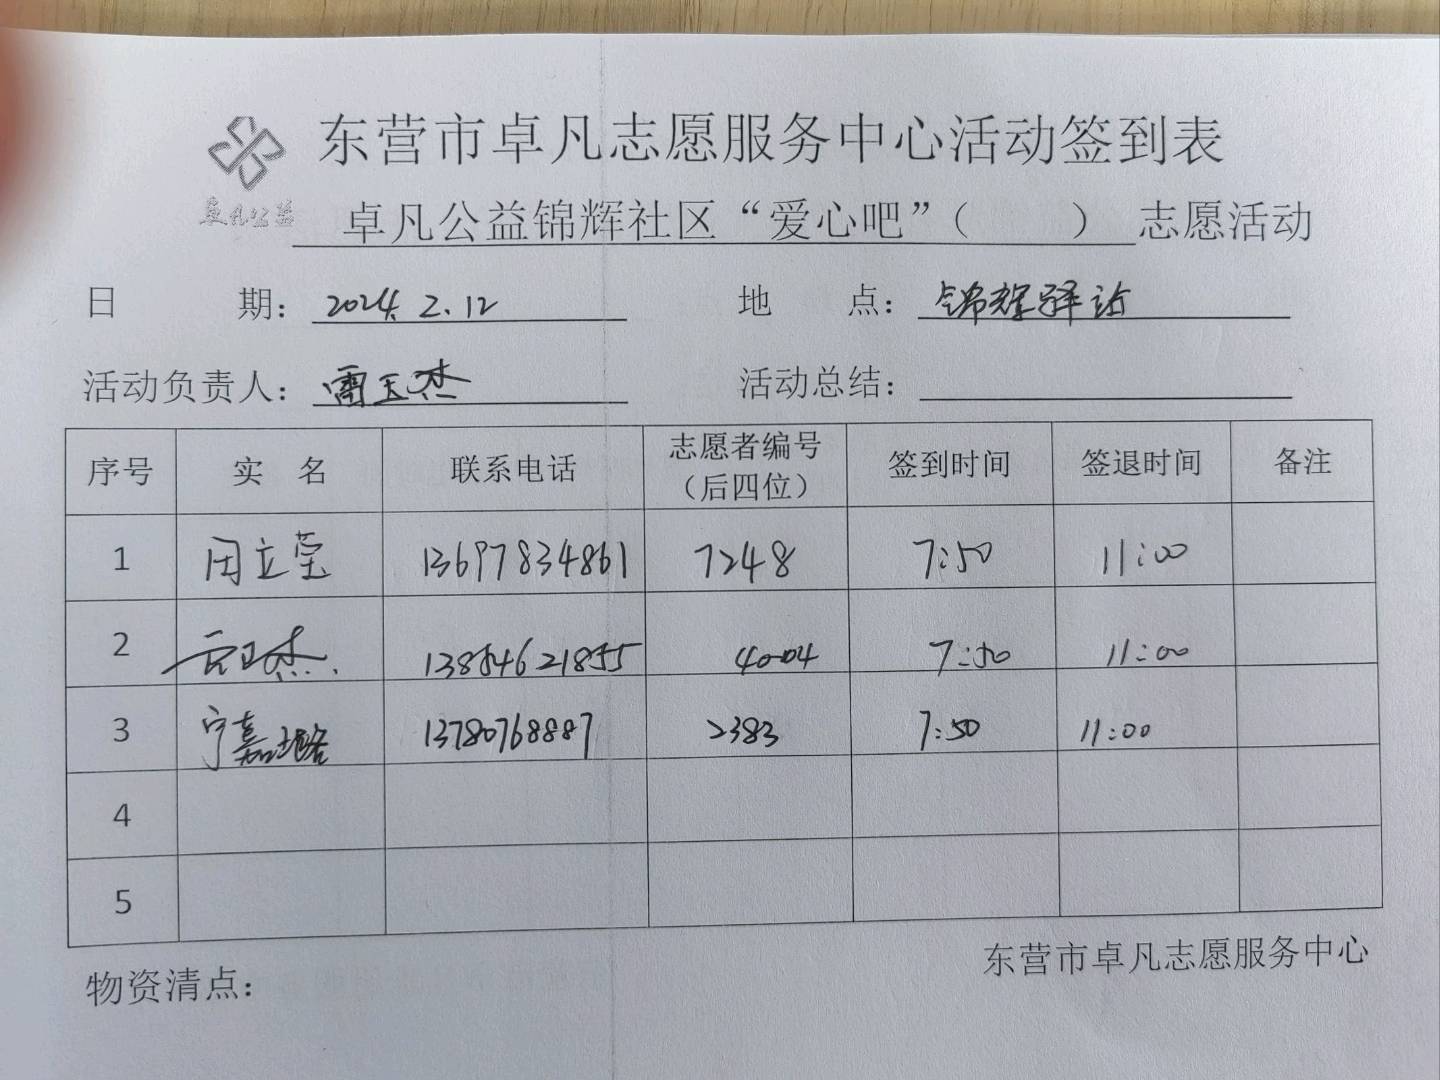 东营市卓凡志愿服务中心活动签到表
卓凡公益
卓凡公益锦辉社区“爱心吧”（ ）志愿活动
日 期：2024.2.12 地 点：锦辉驿站
活动负责人：雷玉杰 活动总结：
序号 实 名 联系电话 志愿者编号（后四位） 签到时间 签退时间 备注
1 田立莹 13697834861 7248 7:50 11:00
2 13854621855 4004 7:50 11:00
3 宁嘉璐 13780768887 2383 7:50 11:00
4
5
东营市卓凡志愿服务中心
物资清点：